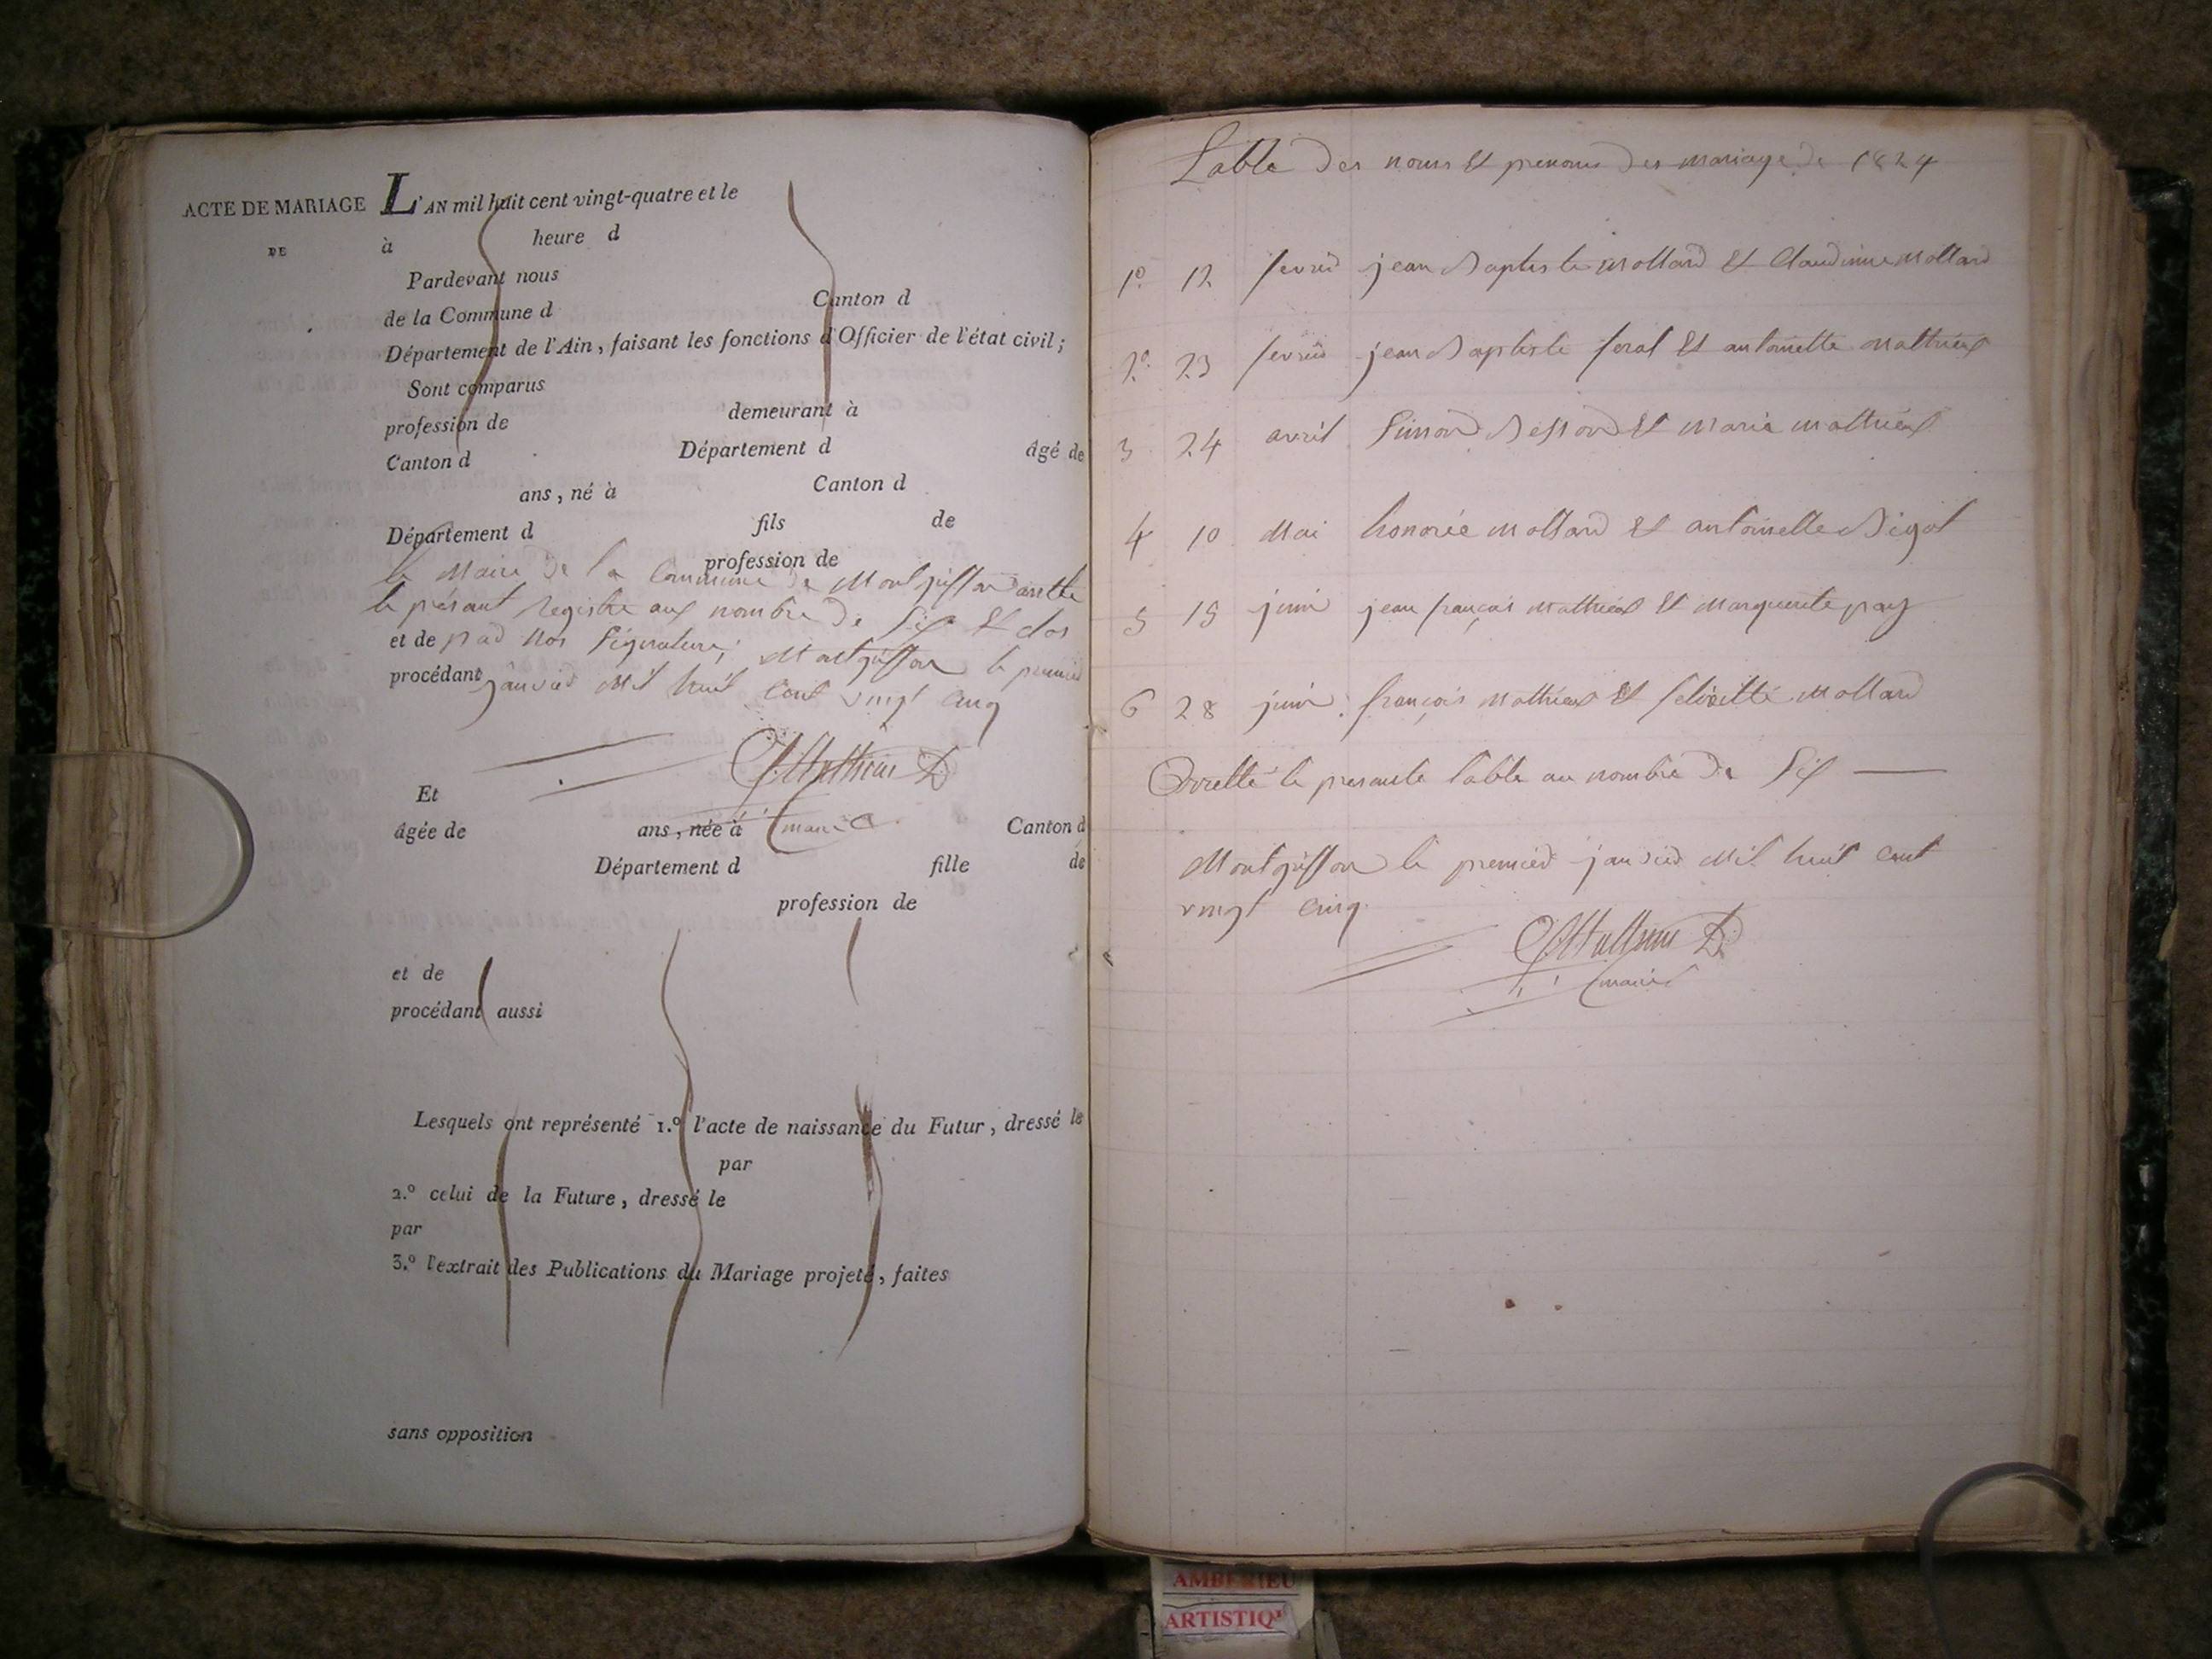 ACTE DE MARIAGE
DE
L'AN mil huit cent vingt-quatre et le
à heure d
Pardevant nous
de la Commune d Canton d
Département de l'Ain, faisant les fonctions d'Officier de l'état civil;
Sont comparus
profession de demeurant à
Canton d Département d âgé de
ans, né à Canton d
Département d fils de
profession de
le Maire de la Commune de Montgriffon arrette
le présant registre aux nombre de Six et clos
et de par nos Signature; Montgriffon le premier
procédant janvier Mil huit cent vingt cinq
Mathieu
Et
âgée de ans, née à maire Canton d
Département d fille de
profession de
et de
procédant aussi
Lesquels ont représenté 1.º l'acte de naissance du Futur, dressé le
par
2.º celui de la Future, dressé le
par
3.º l'extrait des Publications du Mariage projeté, faites
sans opposition
Table des noms et prenoms des mariage de 1824
1º 12 fevrier jean Baptiste Mollard et Claudinne Mollard
2º 23 fevrier jean Baptiste feral et antoinette Mathieux
3 24 avril Simon et Marie Mathieux
4 10 Mai honorée Mollard et antoinette Bigot
5 15 juin jean françois Mathieux et Marguerite
6 28 juin françois Mathieux et Mollard
arretté le presante table au nombre de Six
Montgriffon le premier janvier Mil huit cent
vingt cinq
Mathieu
maire
AMBERIEU
ARTISTIQ